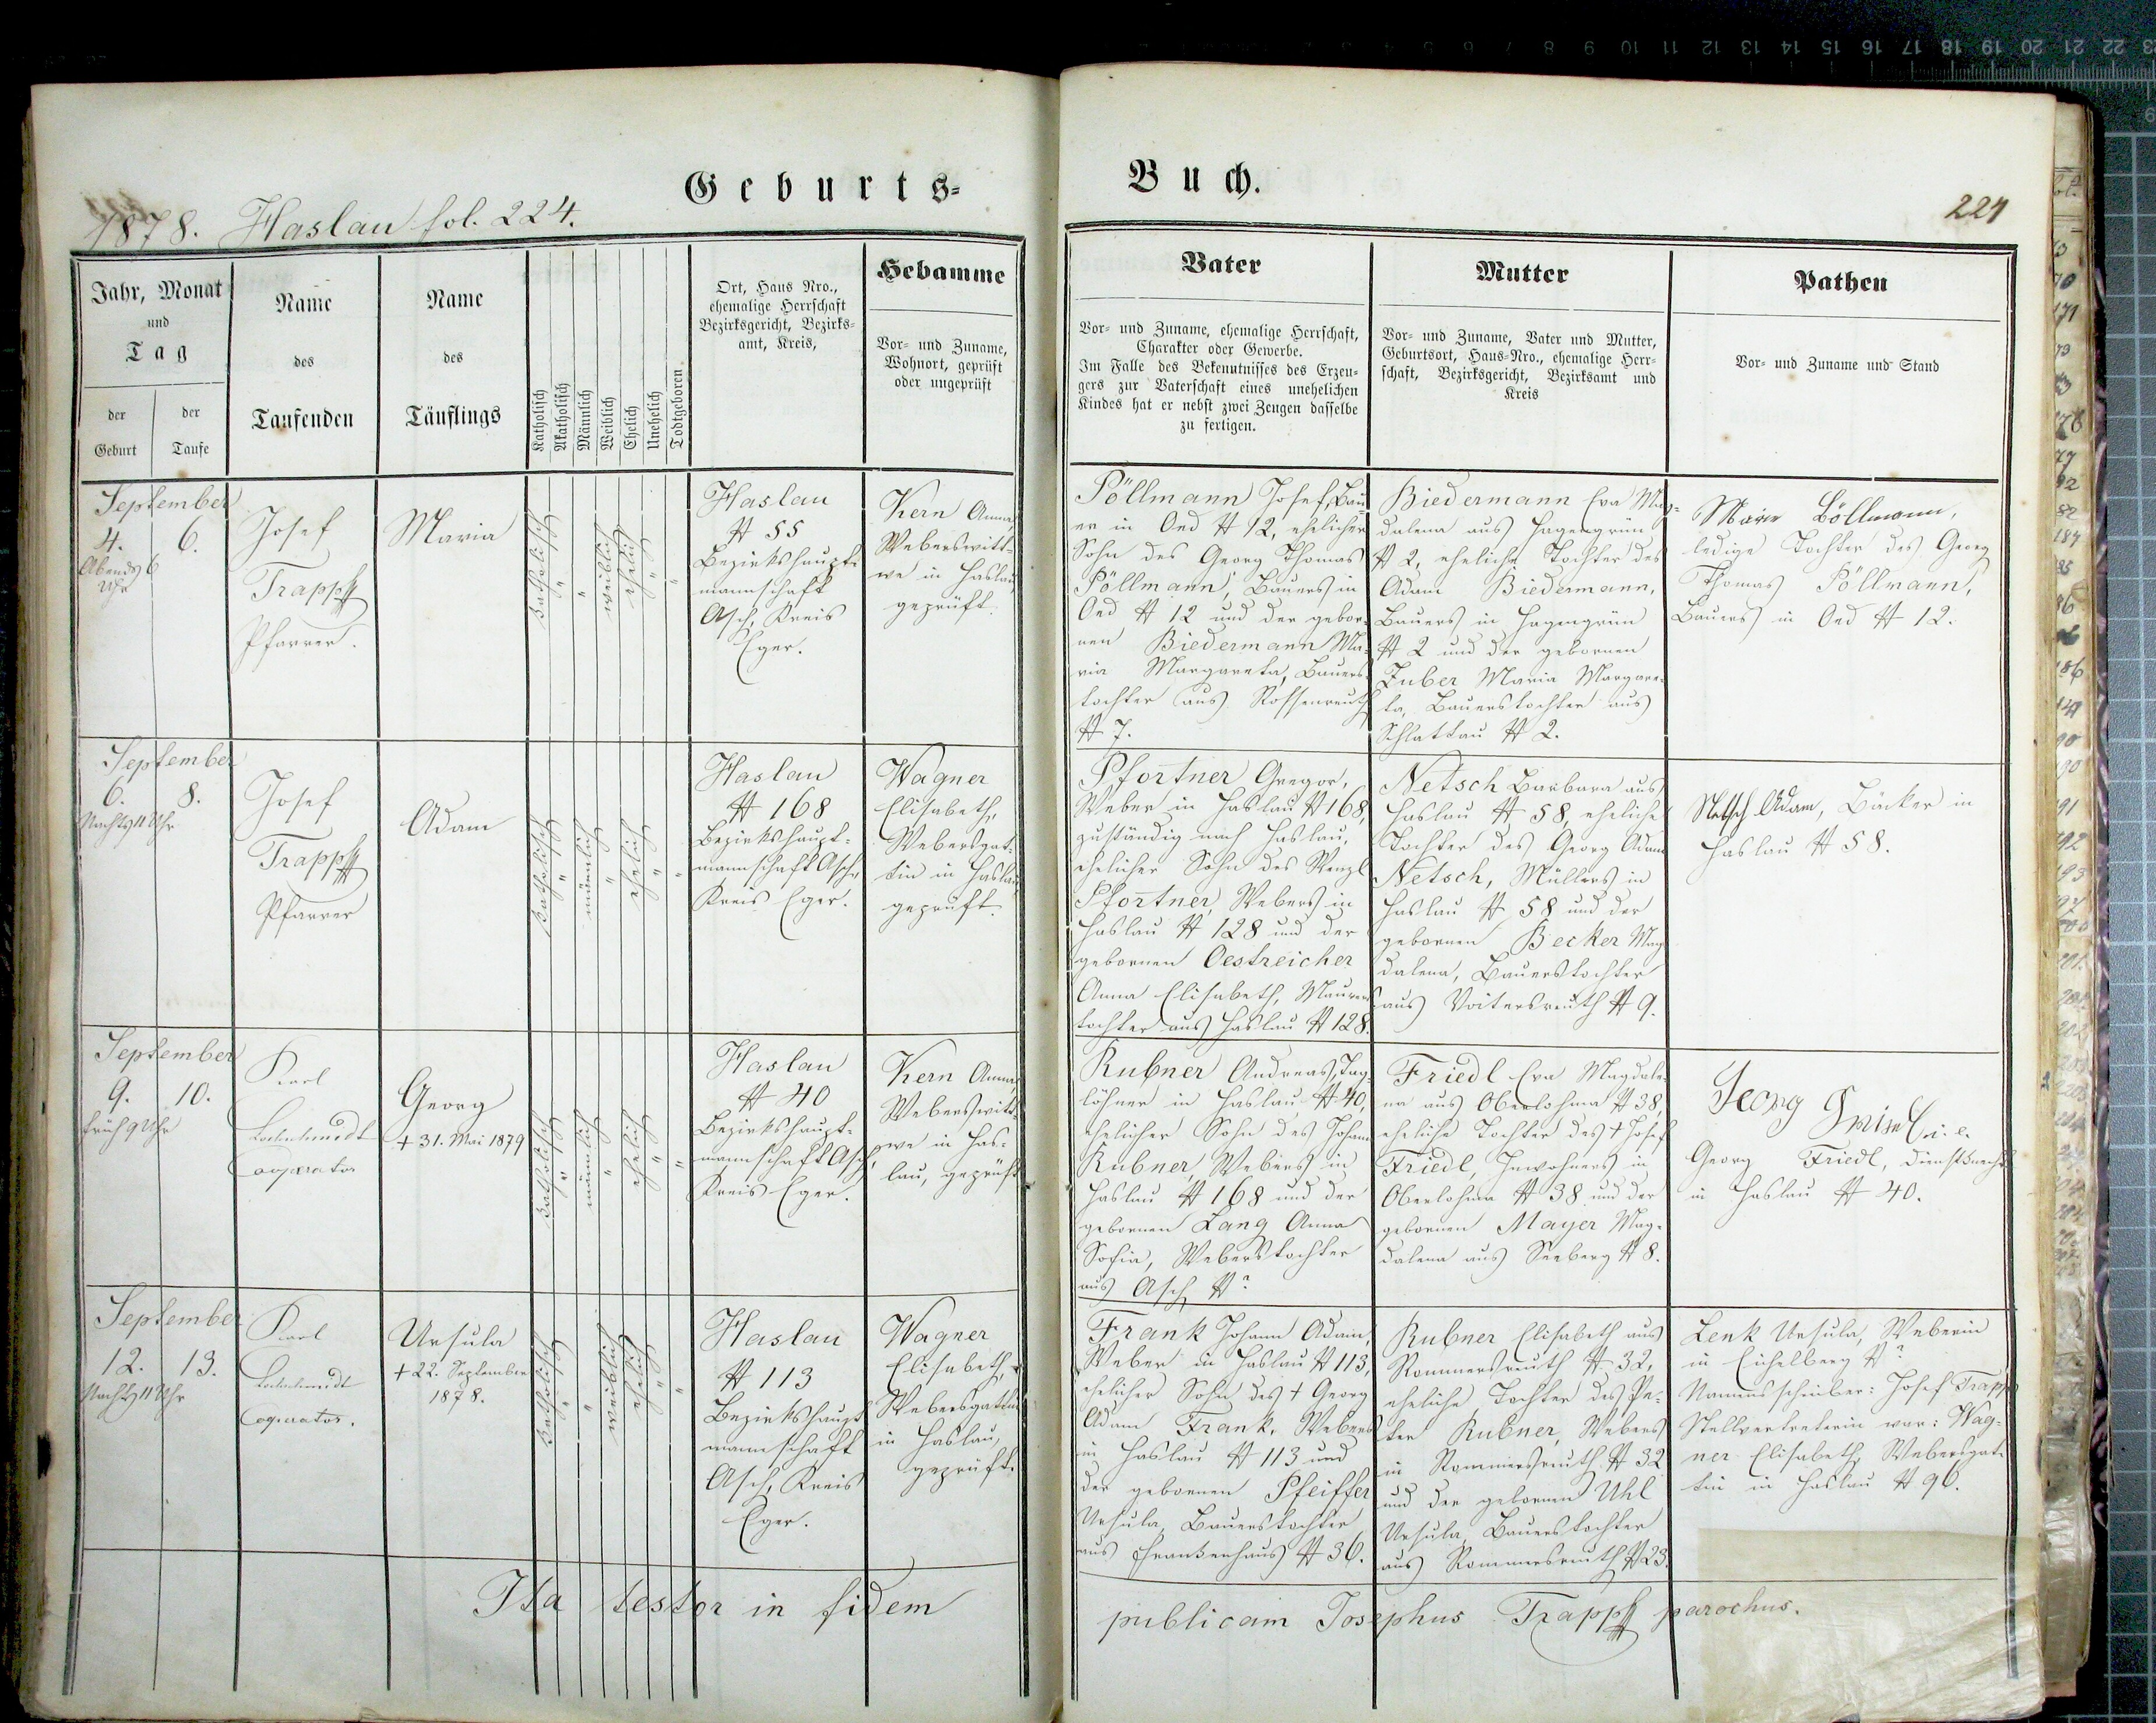 Geburts-
Buch.
1878. Haslau fol. 224.
224
Jahr, Monat
und
Tag
der
Geburt
der
Taufe
Name
des
Taufenden
Name
des
Täuflings
Katholisch
Akatholisch
Männlich
Weiblich
Ehelich
Unehelich
Todtgeboren
Ort, Haus Nro.,
ehemalige Herrschaft
Bezirksgericht, Bezirks-
amt, Kreis,
Hebamme
Vor- und Zuname,
Wohnort, geprüft
oder ungeprüft
Vater
Vor- und Zuname, ehemalige Herrschaft,
Charakter oder Gewerbe.
Im Falle des Bekenntnisses des Erzeu-
gers zur Vaterschaft eines unehelichen
Kindes hat er nebst zwei Zeugen dasselbe
zu fertigen.
Mutter
Vor- und Zuname, Vater und Mutter,
Geburtsort, Haus-Nro., ehemalige Herr-
schaft, Bezirksgericht, Bezirksamt und
Kreis
Pathen
Vor- und Zuname und Stand
September
4. 6.
Abends 6
Uhr
Josef
Trapp
Pfarrer.
Maria
katholisch
"
"
weiblich
ehelich
"
"
Haslau
# 55
Bezirkshaupt-
mannschaft
Asch, Kreis
Eger.
Kern Anna,
Weberswitt-
we in Haslau,
geprüft.
Pöllmann Josef, Bau-
er in Oed # 12, ehelicher
Sohn des Georg Thomas
Pöllmann, Bauers in
Oed # 12 und der gebor-
nen Biedermann Ma-
ria Margareta, Bauers-
tochter aus Rossenreuth
# 7.
Biedermann Eva Mag-
dalena aus Hagengrün
# 2, eheliche Tochter des
Adam Biedermann,
Bauers in Hagengrün
# 2 und der gebornen
Zuber Maria Margare-
ta, Bauerstochter aus
Schlattau # 2.
Maria Böllmann,
ledige Tochter des Georg
Thomas Pöllmann,
Bauers in Oed # 12.
September
6. 8.
Nachts 11 Uhr
Josef
Trapp
Pfarrer
Adam
katholisch
"
männlich
"
ehelich
"
"
Haslau
# 168
Bezirkshaupt-
mannschaft Asch,
Kreis Eger.
Wagner
Elisabeth,
Webersgat-
tin in Haslau,
geprüft.
Pfortner Gregor,
Weber in Haslau # 168,
zuständig nach Haslau,
ehelicher Sohn des Wenzl
Pfortner, Webers in
Haslau # 128 und der
gebornen Oestreicher
Anna Elisabeth, Maurers-
tochter aus Haslau # 128.
Netsch Barbara aus
Haslau # 58, eheliche
Tochter des Georg Adam
Netsch, Müllers in
Haslau # 58 und der
gebornen Becker Mag-
dalena, Bauerstochter
aus Voitersreuth # 9.
Netsch Adam, Bäcker in
Haslau # 58.
September
9. 10.
früh 9 Uhr
Karl
Cooperator
Georg
+ 31. Mai 1879
katholisch
"
männlich
"
ehelich
"
"
Haslau
# 40
Bezirkshaupt-
mannschaft Asch,
Kreis Eger.
Kern Anna
Weberswitt-
we in Has-
lau, geprüft
Rubner Andreas, Tag-
löhner in Haslau # 40,
ehelicher Sohn des Johann
Rubner, Webers in
Haslau # 168 und der
gebornen Lang Anna
Sofia, Weberstochter
aus Asch #?
Friedl Eva Magdale-
na aus Oberlohma # 38,
eheliche Tochter des + Josef
Friedl, Inwohners in
Oberlohma # 38 und der
gebornen Mayer Mag-
dalena aus Seeberg # 8.
Georg i. e.
Georg Friedl, Dienstknecht
in Haslau # 40.
September
12. 13.
Nachts 11 Uhr
Karl
Cooperator.
Ursula
+ 22. September
1878.
katholisch
"
"
weiblich
ehelich
"
"
Haslau
# 113
Bezirkshaupt
mannschaft
Asch, Kreis
Eger.
Wagner
Elisabeth,
Webersgattin
in Haslau,
geprüft.
Frank Johann Adam,
Weber in Haslau # 113,
ehelicher Sohn des + Georg
Adam Frank, Webers
in Haslau # 113 und
der gebornen Pfeiffer
Ursula, Bauerstochter
aus Frankenhaus # 36.
Rubner Elisabeth aus
Rommersreuth # 32,
eheliche Tochter des Pe-
ter Rubner, Webers
in Rommersreuth # 32
und der gebornen Uhl
Ursula, Bauerstochter
aus Rommersreuth # 23.
Lenk Ursula, Weberin
in Eichelberg #?
Namensschreiber: Josef Trapp
Stellvertreterin war: Wag-
ner Elisabeth, Webersgat-
tin in Haslau # 96.
Ita testor in fidem
publicam Josephus Trapp parochus.